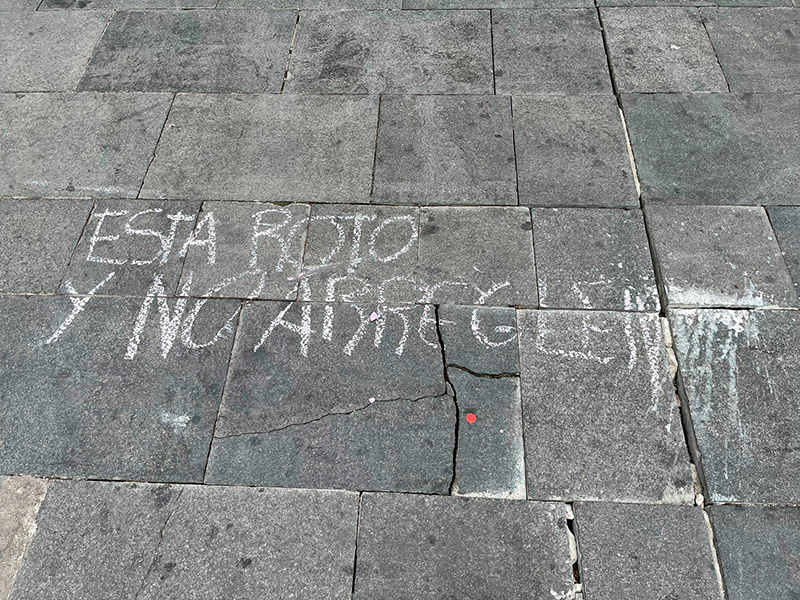 ESTA ROTO
Y NO ARREGLEN